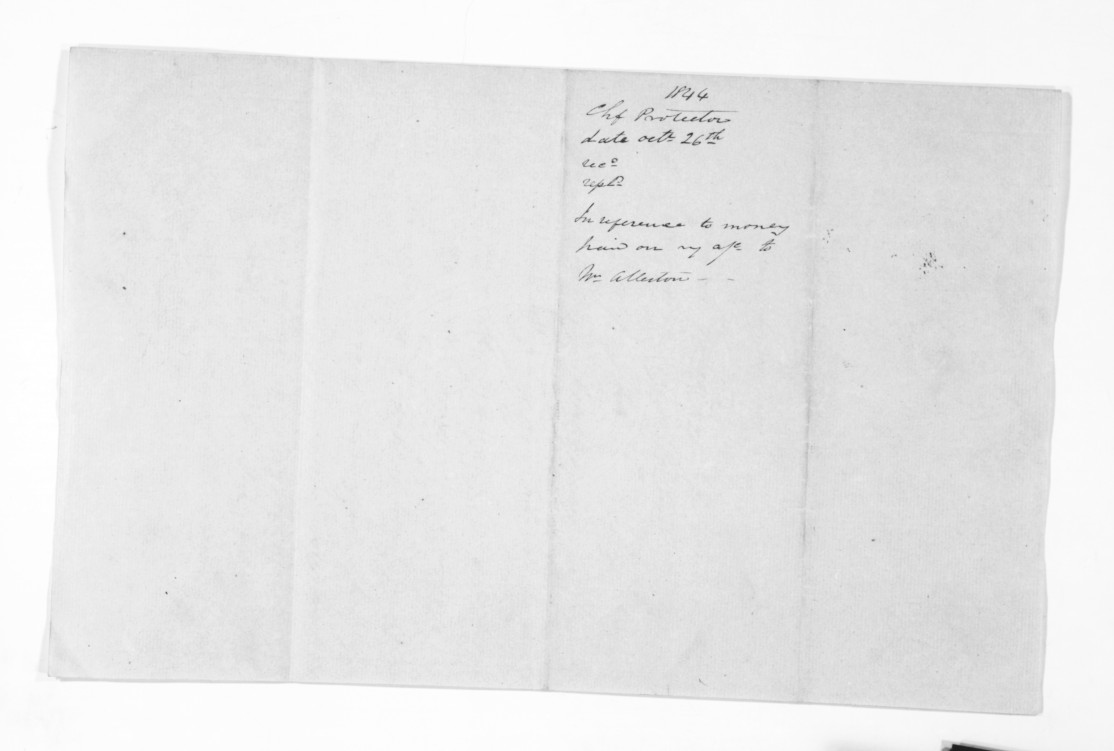 1844
Chf Protector
date octr 26th
recd
repld
In reference to money
paid on my a/c to
Mr Allerton